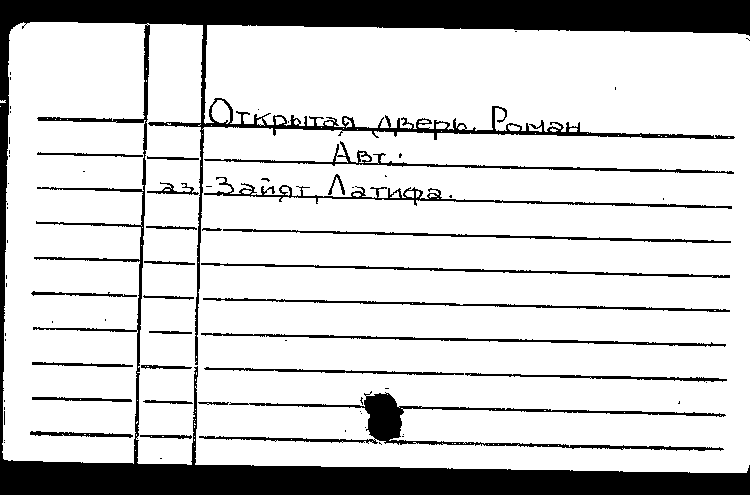 Открытая дверь. Роман
Авт.:
аз-Зайят, Латифа.